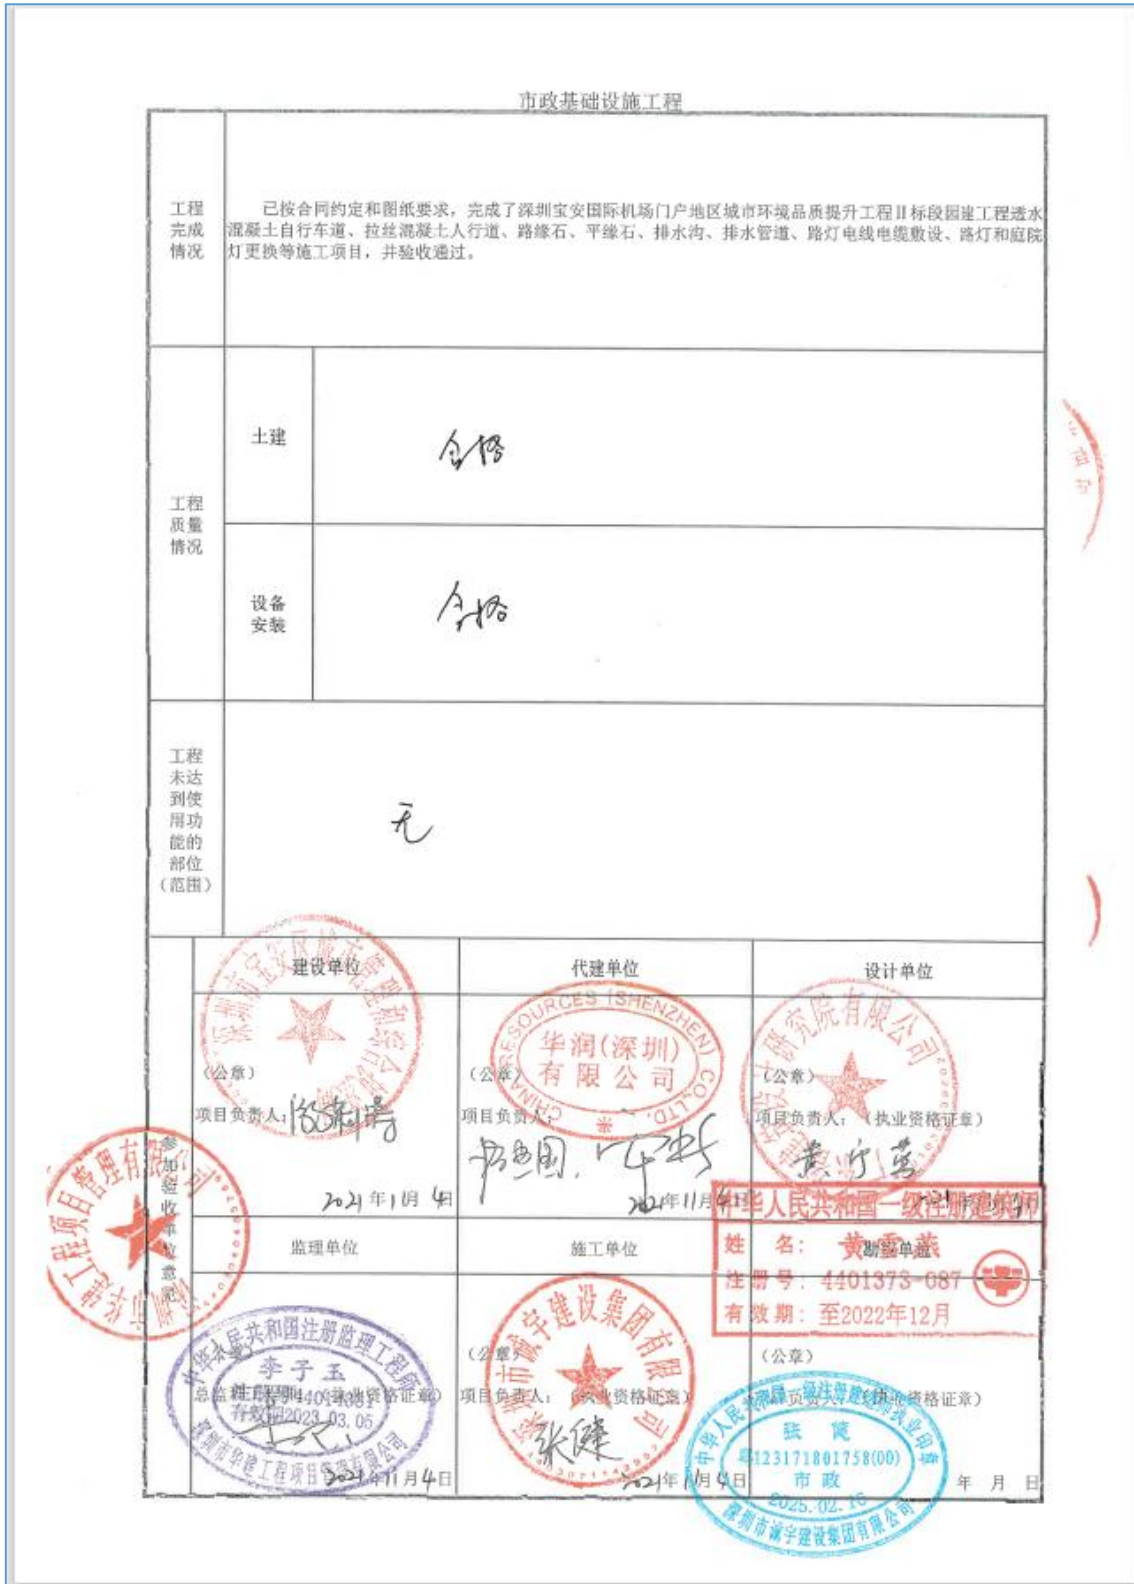 市政基础设施工程
工程
完成
情况
已按合同约定和图纸要求，完成了深圳宝安国际机场门户地区城市环境品质提升工程Ⅱ标段园建工程透水
混凝土自行车道、拉丝混凝土人行道、路缘石、平缘石、排水沟、排水管道、路灯电线电缆敷设、路灯和庭院
灯更换等施工项目，并验收通过。
工程
质量
情况
土建
合格
设备
安装
合格
工程
未达
到使
用功
能的
部位
（范围）
无
参加验收单位意见
建设单位
（公章）
项目负责人：
2021年11月4日
代建单位
CHINA RESOURCES (SHENZHEN) CO.,LTD.
华润(深圳)
有限公司
（公章）
项目负责人：
2021年11月4日
设计单位
研究院有限公司
（公章）
项目负责人：（执业资格证章）
中华人民共和国一级注册建筑师
姓 名：
注册号：4401373-087
有效期：至2022年12月
工程项目管理有限公司
监理单位
中华人民共和国注册监理工程师
李子玉
有效期2023.03.05
深圳市华建工程项目管理有限公司
2021年11月4日
施工单位
深圳市诚宇建设集团有限公司
（公章）
项目负责人：（执业资格证章）
张健
2021年11月4日
勘察单位
（公章）
项目负责人：（执业资格证章）
中华人民共和国一级注册建造师执业印章
张健
粤123171801758(00)
市政
2025.02.16
深圳市诚宇建设集团有限公司
年 月 日